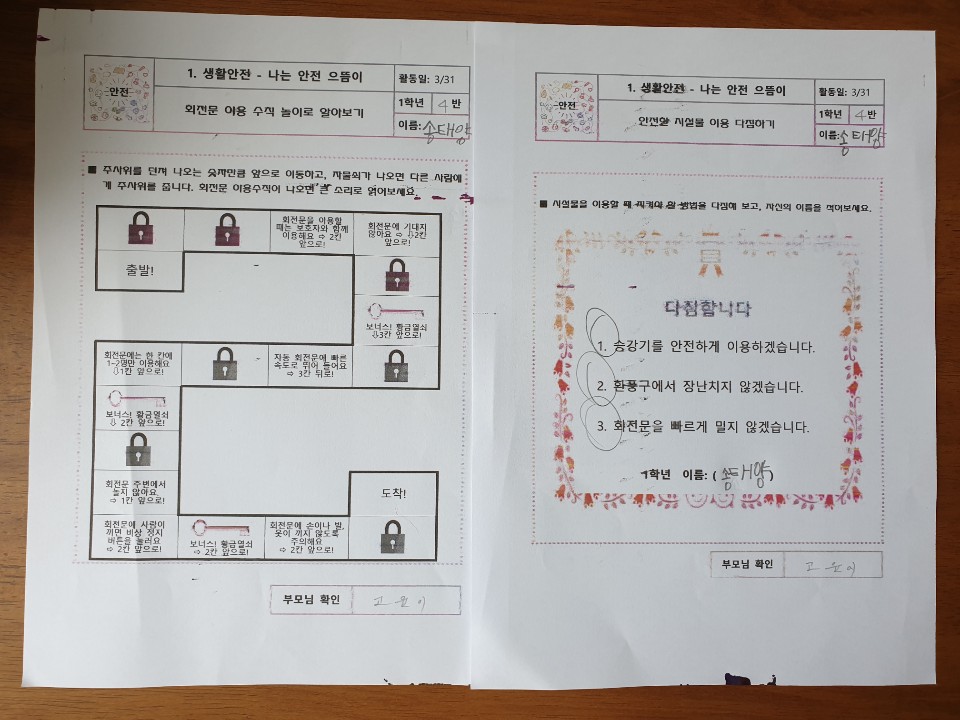 안전
1. 생활안전 - 나는 안전 으뜸이
활동일: 3/31
회전문 이용 수칙 놀이로 알아보기
1학년 4반
이름: 송태양
■ 주사위를 던져 나오는 숫자만큼 앞으로 이동하고, 자물쇠가 나오면 다른 사람에
게 주사위를 줍니다. 회전문 이용수칙이 나오면 큰 소리로 읽어보세요.
회전문을 이용할
때는 보호자와 함께
이용해요 ⇨ 2칸
앞으로!
회전문에 기대지
않아요 ⇨ ⇩2칸
앞으로!
출발!
보너스! 황금열쇠
⇩3칸 앞으로!
자동 회전문에 빠른
속도로 뛰어 들어요
⇨ 3칸 뒤로!
회전문에는 한 칸에
1-2명만 이용해요
⇩1칸 앞으로!
보너스! 황금열쇠
⇩ 2칸 앞으로!
회전문 주변에서
놀지 않아요
⇨ 1칸 앞으로!
회전문에 사람이
끼면 비상 정지
버튼을 눌러요
⇨ 2칸 앞으로!
보너스! 황금열쇠
⇨ 2칸 앞으로!
회전문에 손이나 발,
옷이 끼지 않도록
주의해요
⇨ 2칸 앞으로!
도착!
부모님 확인
고윤이
안전
1. 생활안전 - 나는 안전 으뜸이
활동일: 3/31
안전한 시설물 이용 다짐하기
1학년 4반
이름: 송태양
■ 시설물을 이용할 때 지켜야 할 방법을 다짐해 보고, 자신의 이름을 적어보세요.
다짐합니다
1. 승강기를 안전하게 이용하겠습니다.
2. 환풍구에서 장난치지 않겠습니다.
3. 회전문을 빠르게 밀지 않겠습니다.
1학년 이름: ( 송태양 )
부모님 확인
고윤이